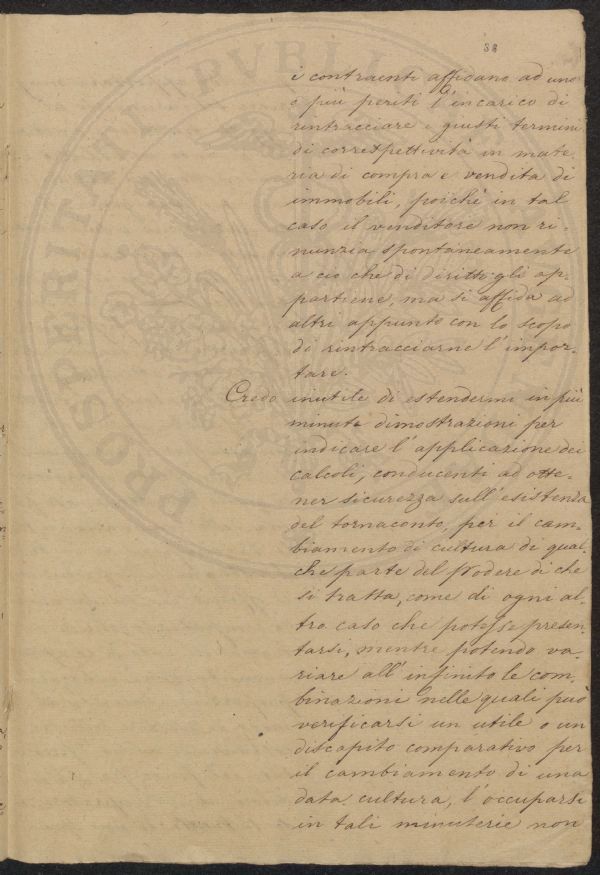 38
i contraenti affidano ad uno
o più periti l'incarico di
rintracciare i giusti termini
di correspettività in mate-
ria di compra e vendita di
immobili, poichè in tal
caso il venditore non ri-
nunzia spontaneamente
a ciò che di diritto gli ap-
partiene, ma si affida ad
altri appunto con lo scopo
di rintracciarne l'impor-
tare.
Credo inutile di estendermi in più
minute dimostrazioni per
indicare l'applicazione dei
calcoli, conducenti ad otte-
ner sicurezza sull'esistenza
del tornaconto, per il cam-
biamento di cultura di qual-
che parte del Podere di che
si tratta, come di ogni al-
tro caso che potesse presen-
tarsi, mentre potendo va-
riare all'infinito le com-
binazioni nelle quali può
verificarsi un utile o un
discapito comparativo per
il cambiamento di una
data cultura, l'occuparsi
in tali minuterie non